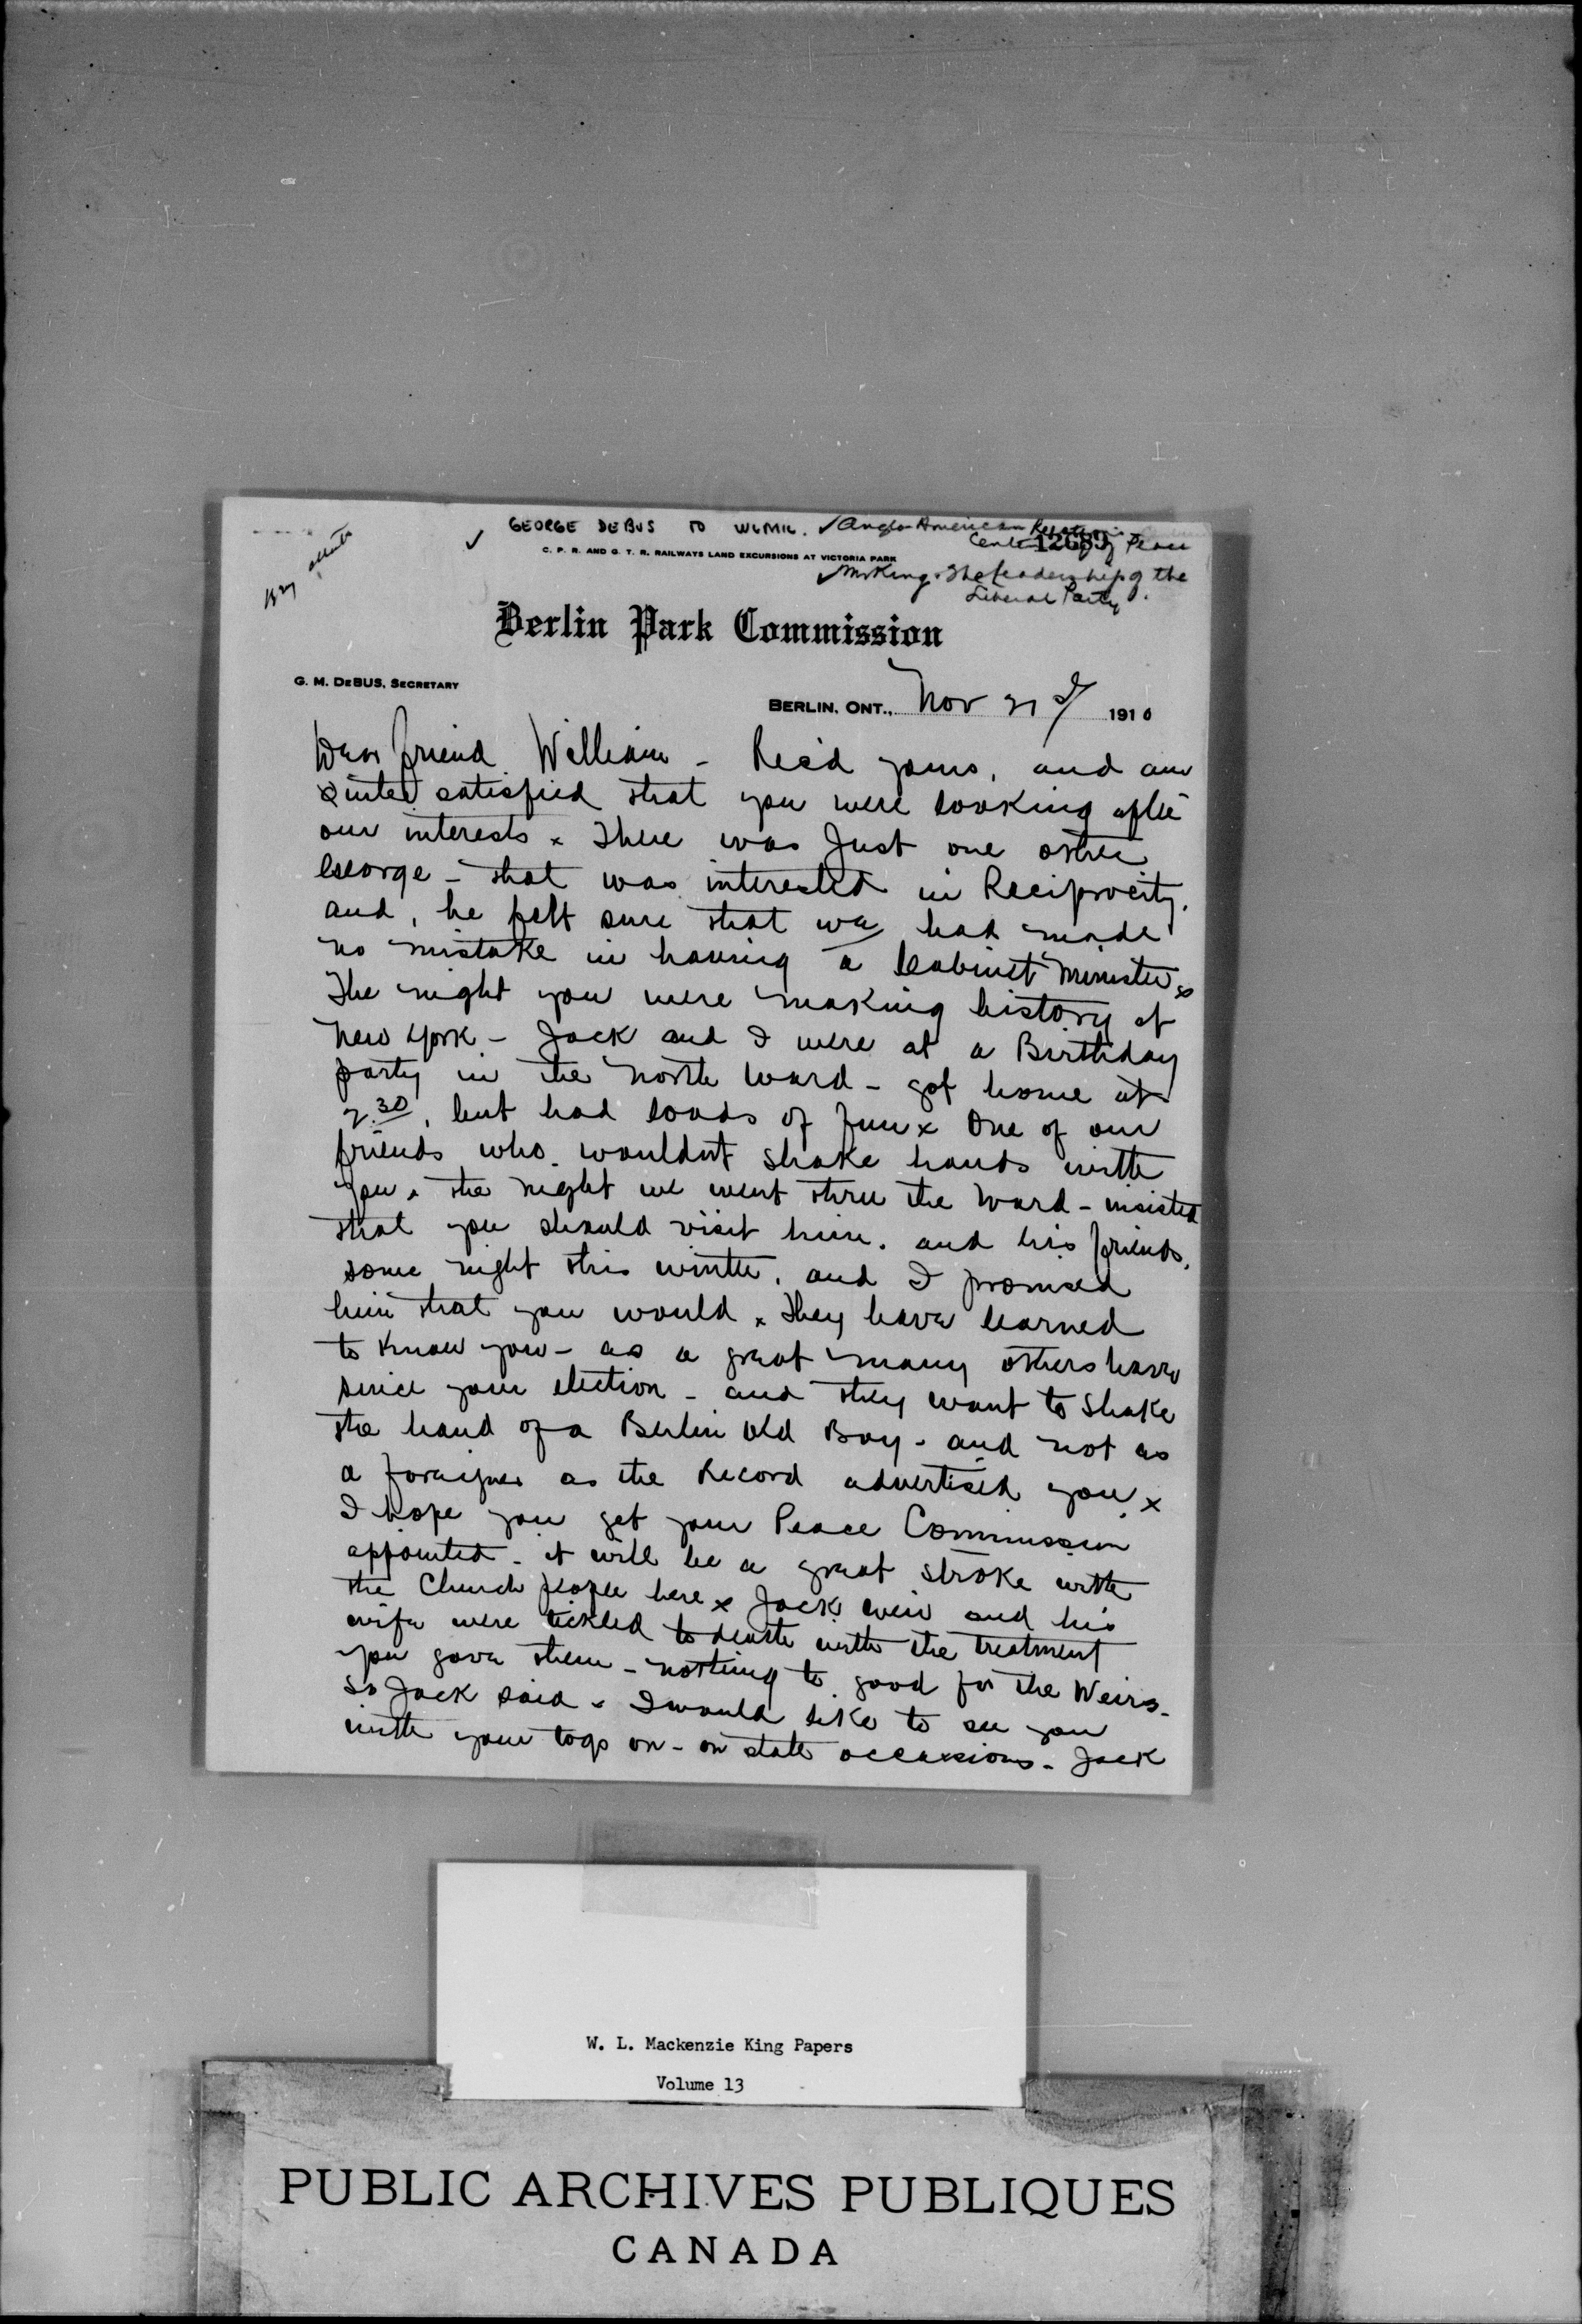 GEORGE DEBUS TO WLMK. ✓ Anglo-American Relations
✓ Centenary of Peace
12689
C. P. R. AND G. T. R. RAILWAYS LAND EXCURSIONS AT VICTORIA PARK
✓ Mr King & The leadership of the
Liberal Party.
Berlin Park Commission
G. M. DEBUS, SECRETARY
BERLIN, ONT., Nov 21st 1910
Dear friend William - Rec'd yours, and am
quited satisfied that you were looking after
our interests x There was Just one other
George - that was interested in Reciprocity.
and, he felt sure that we had made
no mistake in having a Cabinet Minister x
The night you were making history at
New York - Jack and I were at a Birthday
party in the North Ward - got home at
2.30, but had loads of fun x One of our
friends who wouldnt shake hands with
you x the night we went thru the Ward - insisted
that you should visit him. and his friends,
some night this winter, and I promised
him that you would x They have learned
to know you - as a great many others have
since your election - and they want to shake
the hand of a Berlin Old Boy - and not as
a foreigner as the Record advertised you x
I hope you get your Peace Commission
appointed - it will be a great stroke with
the Church people here x Jack Weir and his
wife were tickled to death with the treatment
you gave them - nothing to good for the Weirs -
so Jack said - I would like to see you
with your togs on - on state occassions - Jack
W. L. Mackenzie King Papers
Volume 13
PUBLIC ARCHIVES PUBLIQUES
CANADA